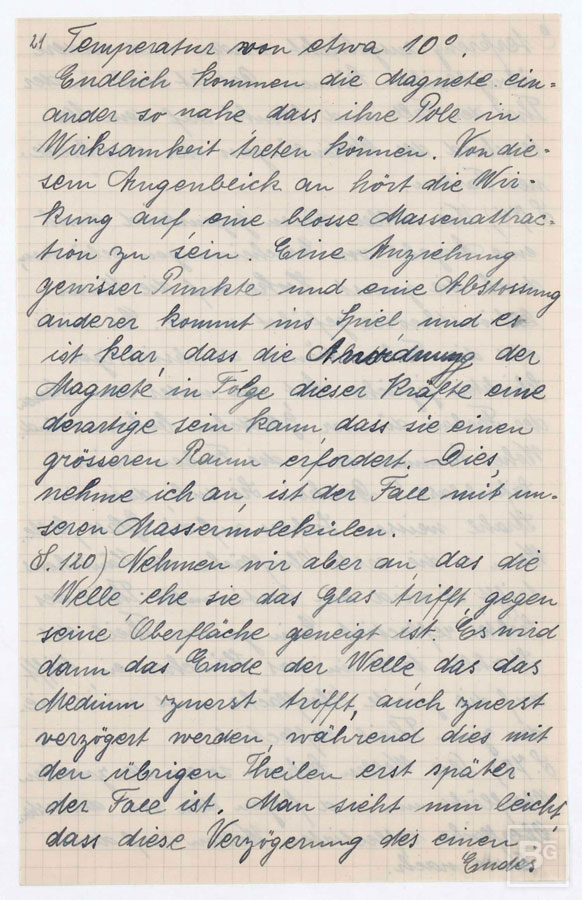 21 Temperatur von etwa 10°.
Endlich kommen die Magnete ein-
ander so nahe dass ihre Pole in
Wirksamkeit treten können. Von die-
sem Augenblick an hört die Wir-
kung auf, eine blosse Massenattrac-
tion zu sein. Eine Anziehung
gewisser Punkte und eine Abstossung
anderer kommt ins Spiel und es
ist klar, dass die Anordnung der
Magnete in Folge dieser Kräfte eine
derartige sein kann, dass sie einen
grösseren Raum erfordert. Dies,
nehme ich an, ist der Fall mit un-
seren Wassermolekülen.
S. 120) Nehmen wir aber an, das die
Welle, ehe sie das Glas trifft, gegen
seine Oberfläche geneigt ist. Es wird
dann das Ende der Welle, das das
Medium zuerst trifft, auch zuerst
verzögert werden, während dies mit
den übrigen Theilen erst später
der Fall ist. Man sieht nun leicht,
dass diese Verzögerung des einen
Endes
BG